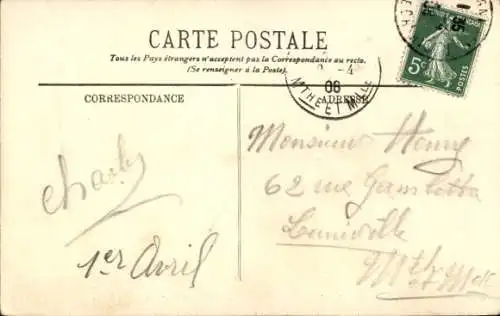 CARTE POSTALE
Tous les Pays étrangers n'acceptent pas la Correspondance au recto.
(Se renseigner à la Poste).
CORRESPONDANCE
ADRESSE
08
MTHE ET M
5c
POSTES
Charles
1er Avril
Monsieur Henry
62 rue Gambetta
Luneville
Mthe et Mlle